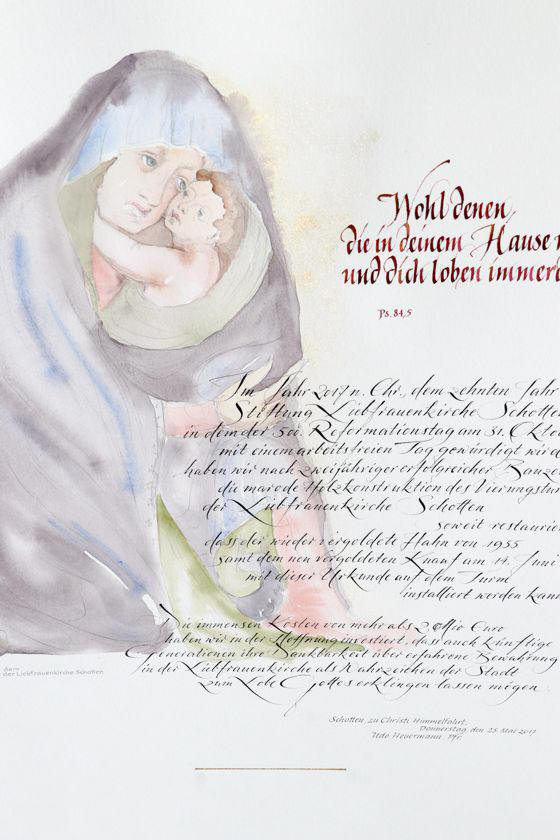 Wohl denen,
die in deinem Hause
und dich loben immer
Ps. 84,5
Im Jahr 2017 n. Chr., dem zehnten Jahr
Stiftung Liebfrauenkirche Schotten
in dem der 500. Reformationstag am 31. Okto
mit einem arbeitsfreien Tag gewürdigt wird
haben wir nach zweijähriger erfolgreicher
die marode Holzkonstruktion des Vierungstur
der Liebfrauenkirche Schotten
soweit restaurier
dass der wieder vergoldete Hahn von 1955
samt dem neu vergoldeten Knauf am 14. Juni
mit dieser Urkunde auf dem Turm
installiert werden kann
Die immensen Kosten von mehr als 2 Mio Euro
haben wir in der Hoffnung investiert, dass auch künftige
Generationen ihre Dankbarkeit über erfahrene Bewahrung
in der Liebfrauenkirche als Wahrzeichen der Stadt
zum Lobe Gottes erklingen lassen mögen.
dem
der Liebfrauenkirche Schotten
Schotten, zu Christi Himmelfahrt,
Donnerstag, den 25. Mai 2017
Udo Heuermann, Pfr.